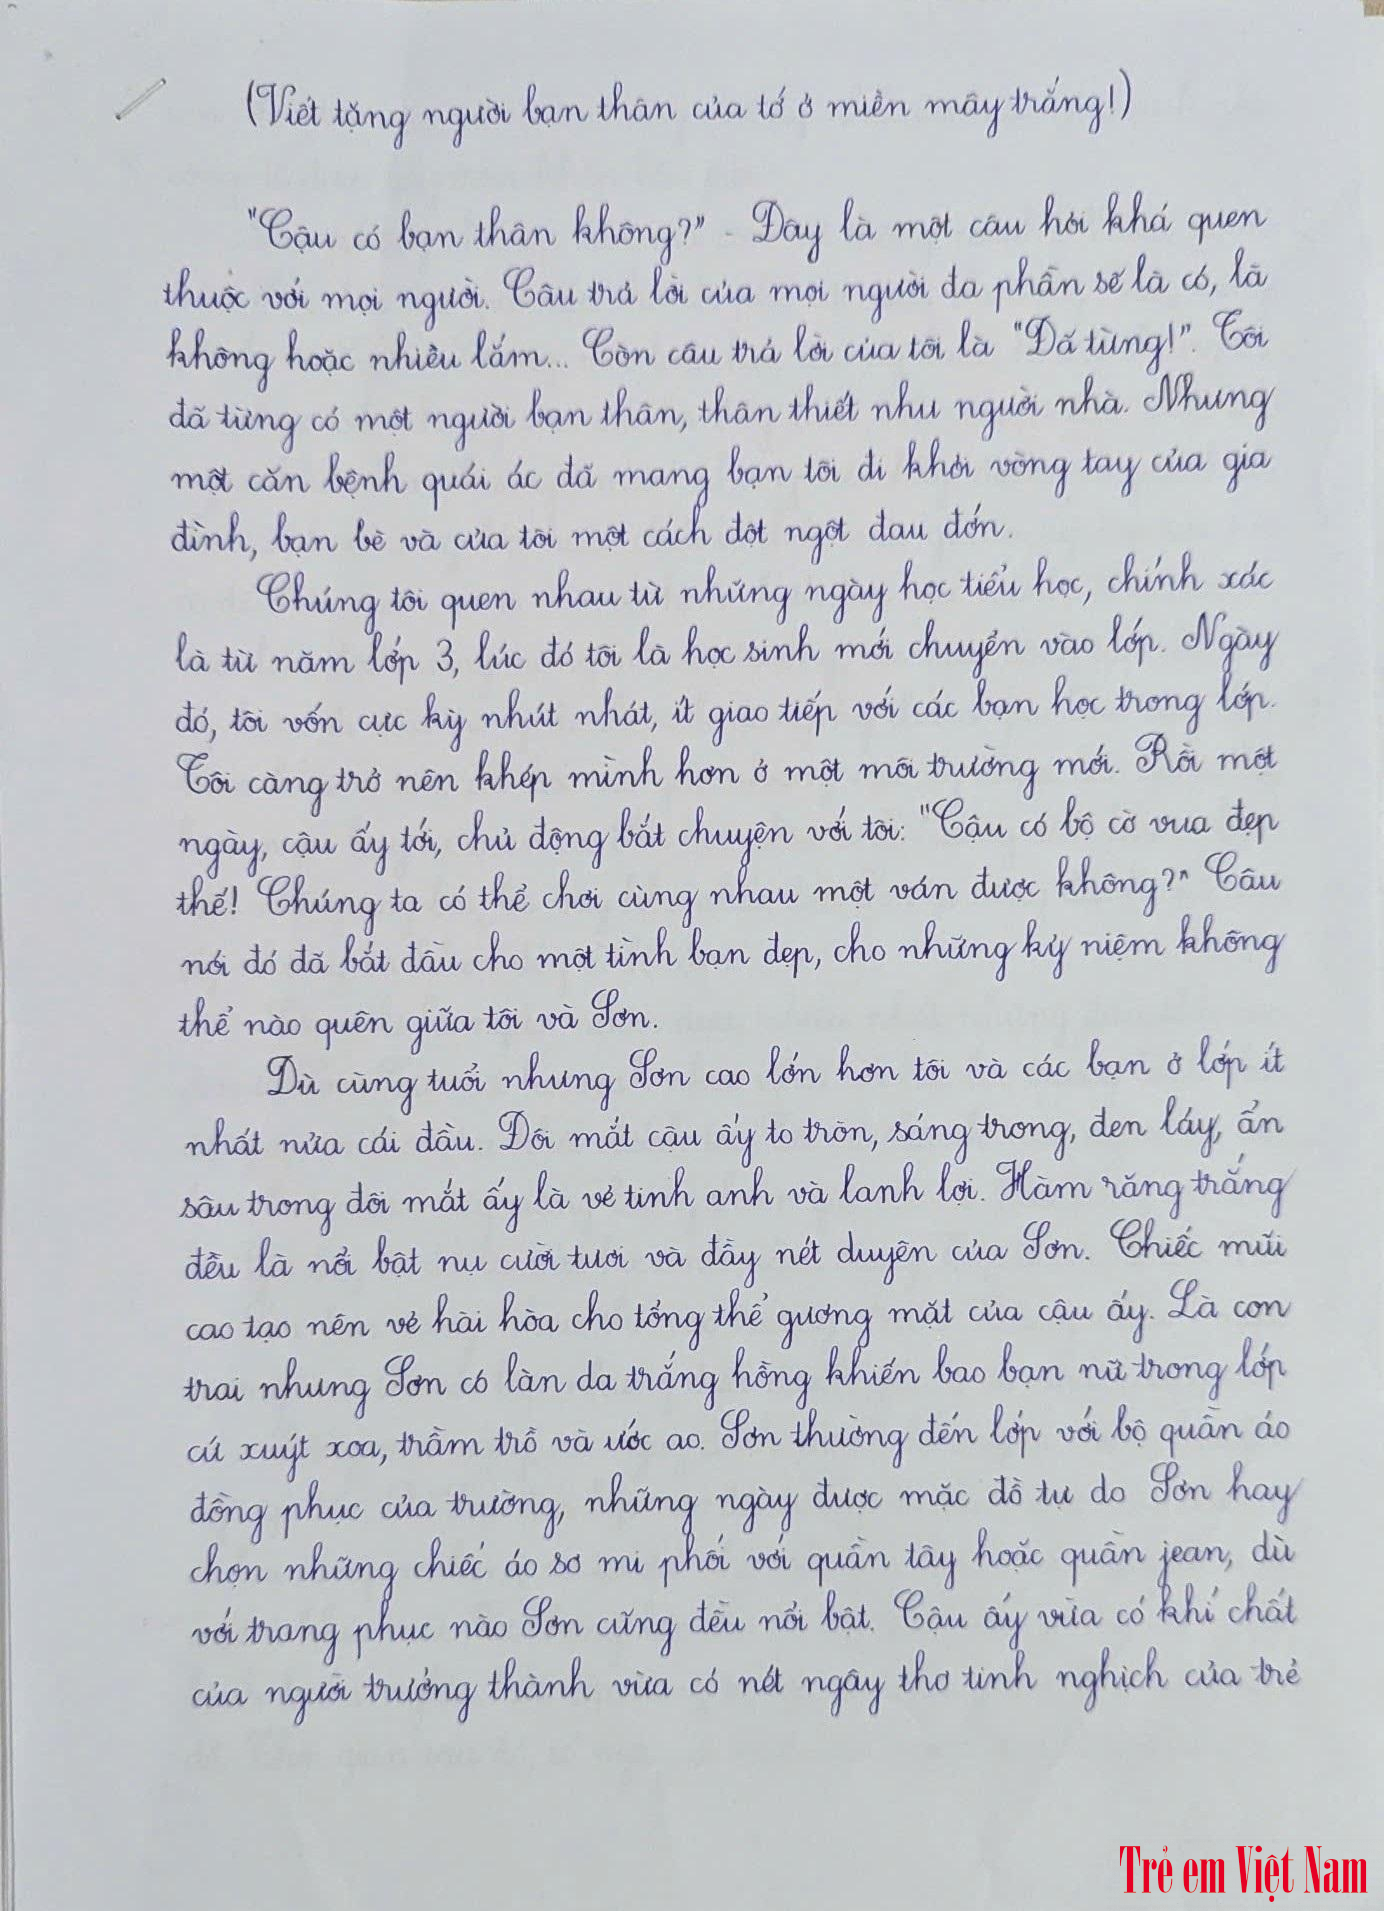 (Viết tặng người bạn thân của tớ ở miền mây trắng!)
"Cậu có bạn thân không?" - Đây là một câu hỏi khá quen
thuộc với mọi người. Câu trả lời của mọi người đa phần sẽ là có, là
không hoặc nhiều lắm... Còn câu trả lời của tôi là "Đã từng!". Tôi
đã từng có một người bạn thân, thân thiết như người nhà. Nhưng
một căn bệnh quái ác đã mang bạn tôi đi khỏi vòng tay của gia
đình, bạn bè và của tôi một cách đột ngột đau đớn.
Chúng tôi quen nhau từ những ngày học tiểu học, chính xác
là từ năm lớp 3, lúc đó tôi là học sinh mới chuyển vào lớp. Ngày
đó, tôi vốn cực kỳ nhút nhát, ít giao tiếp với các bạn học trong lớp.
Tôi càng trở nên khép mình hơn ở một môi trường mới. Rồi một
ngày, cậu ấy tới, chủ động bắt chuyện với tôi: "Cậu có bộ cờ vua đẹp
thế! Chúng ta có thể chơi cùng nhau một ván được không?" Câu
nói đó đã bắt đầu cho một tình bạn đẹp, cho những kỷ niệm không
thể nào quên giữa tôi và Sơn.
Dù cùng tuổi nhưng Sơn cao lớn hơn tôi và các bạn ở lớp ít
nhất nửa cái đầu. Đôi mắt cậu ấy to tròn, sáng trong, đen láy, ẩn
sâu trong đôi mắt ấy là vẻ tinh anh và lanh lợi. Hàm răng trắng
đều là nổi bật nụ cười tươi và đầy nét duyên của Sơn. Chiếc mũi
cao tạo nên vẻ hài hòa cho tổng thể gương mặt của cậu ấy. Là con
trai nhưng Sơn có làn da trắng hồng khiến bao bạn nữ trong lớp
cứ xuýt xoa, trầm trồ và ước ao. Sơn thường đến lớp với bộ quần áo
đồng phục của trường, những ngày được mặc đồ tự do Sơn hay
chọn những chiếc áo sơ mi phối với quần tây hoặc quần jean, dù
với trang phục nào Sơn cũng đều nổi bật. Cậu ấy vừa có khí chất
của người trưởng thành vừa có nét ngây thơ tinh nghịch của trẻ
Trẻ em Việt Nam